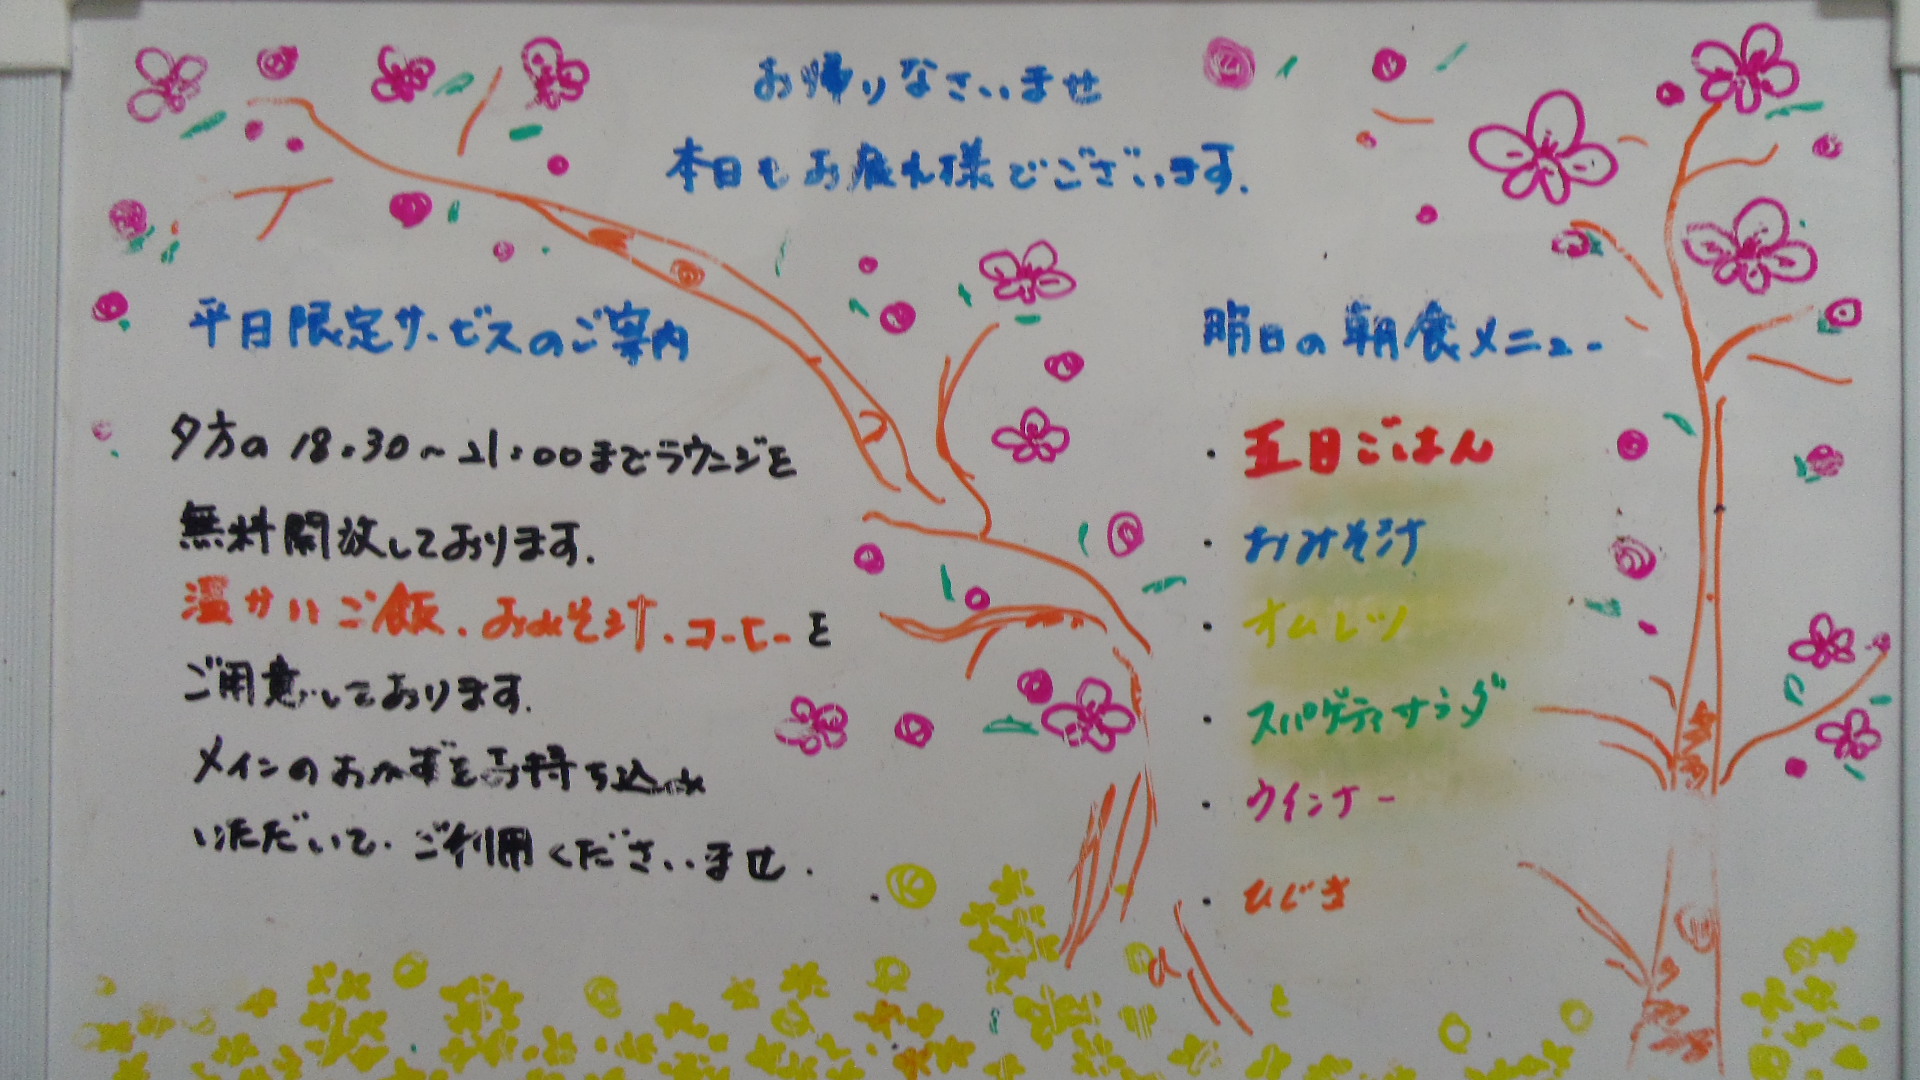 お帰りなさいませ
本日もお疲れ様でございます.
平日限定サービスのご案内
夕方の 18:30〜21:00までラウンジを
無料開放しております.
温かいご飯、おみそ汁、コーヒーを
ご用意しております.
メインのおかずをお持ち込み
いただいて、ご利用くださいませ.
明日の朝食メニュー
・五目ごはん
・おみそ汁
・オムレツ
・スパゲティサラダ
・ウインナー
・ひじき